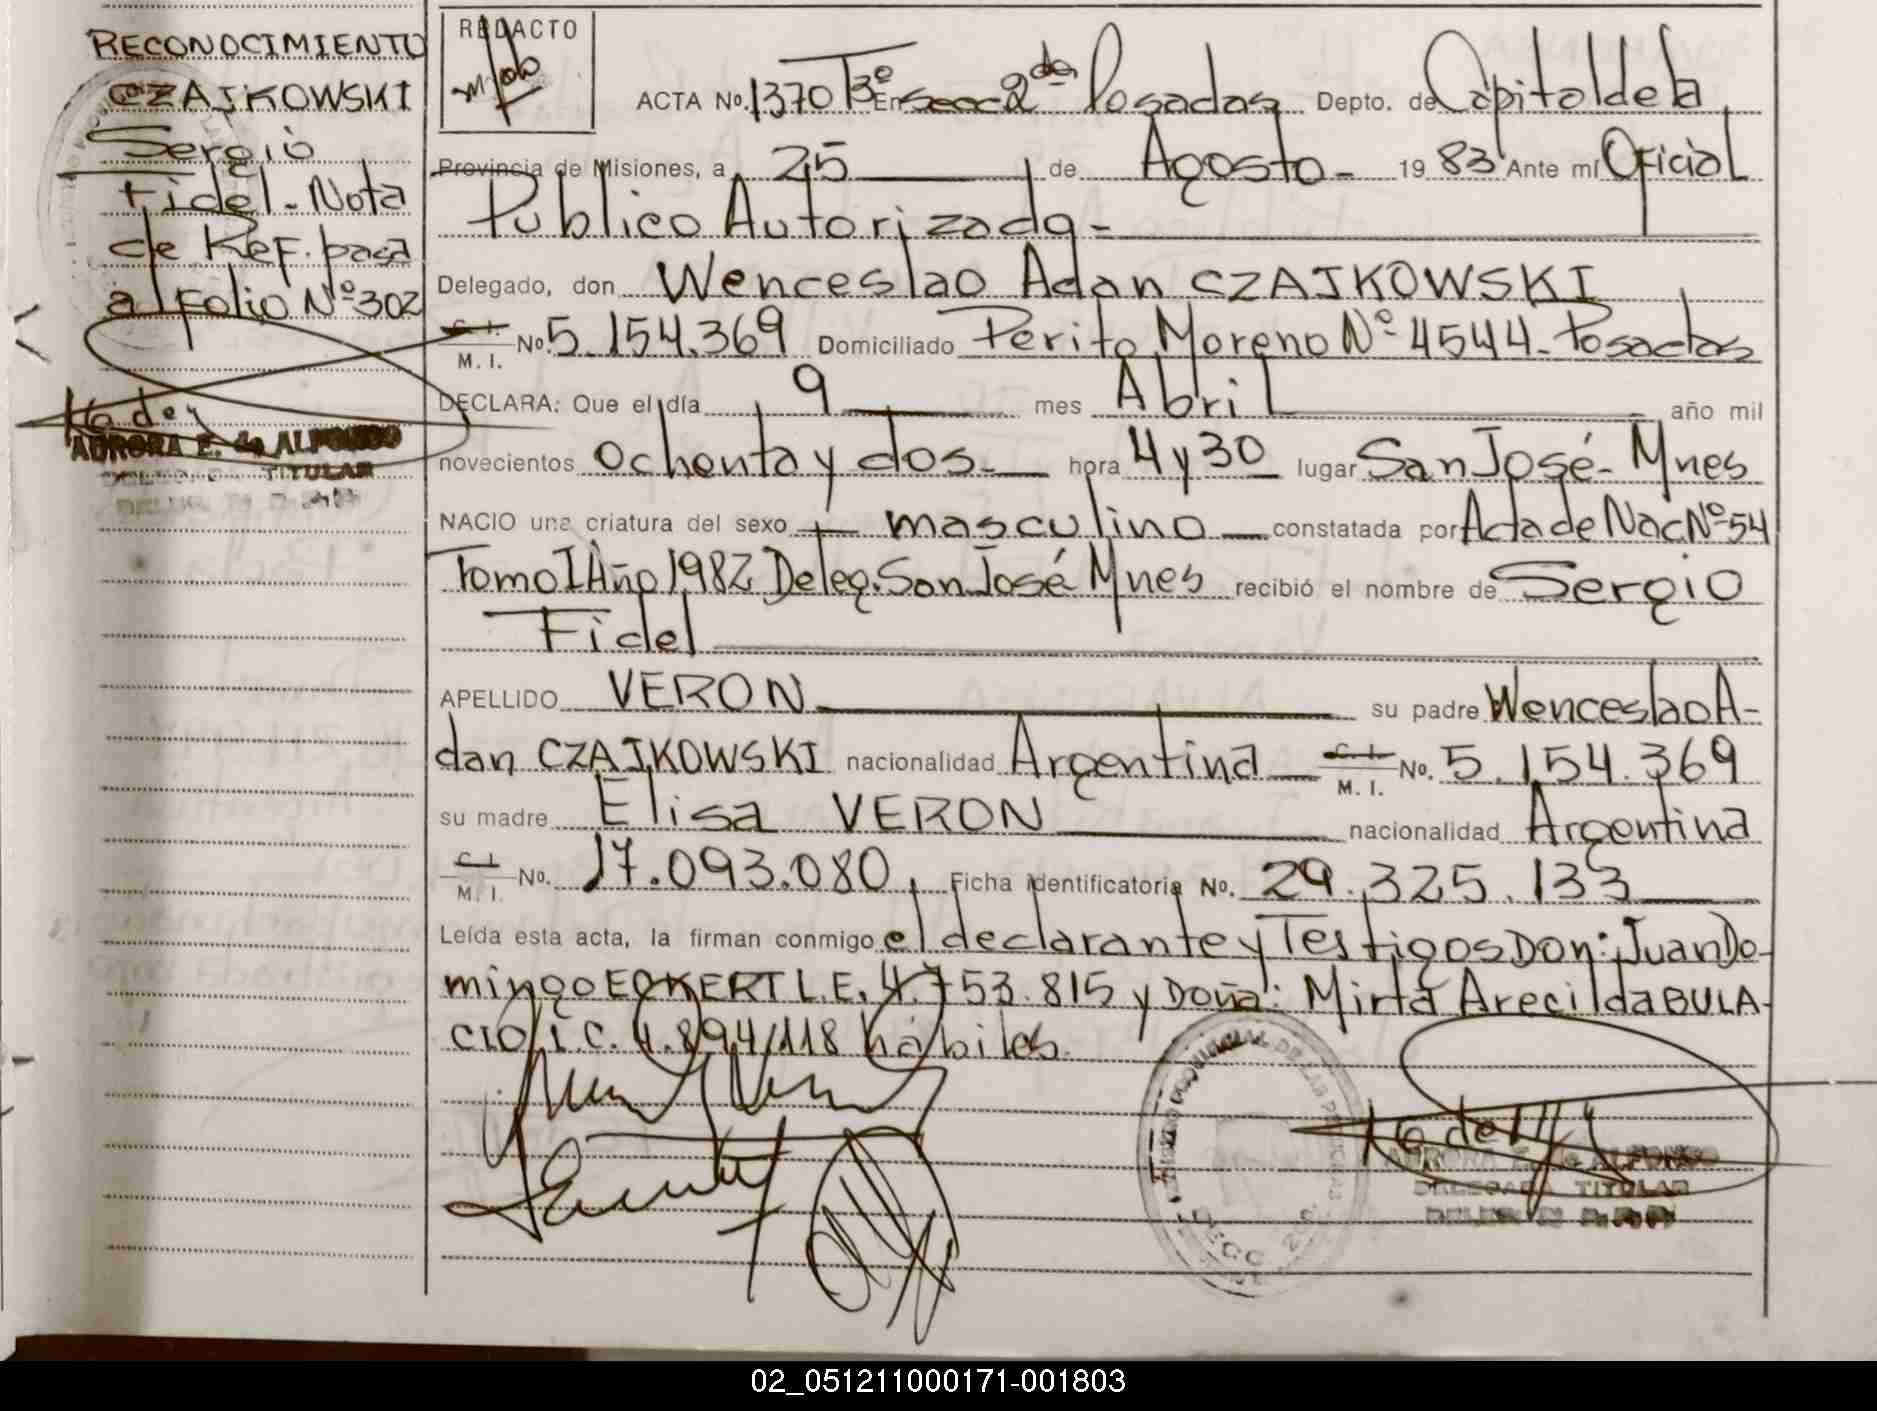 RECONOCIMIENTO
CZAJKOWSKI
Sergio
Fidel - Nota
de Ref. pasa
al Folio Nº 302
AURORA E. de ALFONSO
TITULAR
REDACTO
ACTA No. 1370 Tº 3º En secc 2da Posadas Depto. de Capital de la
Provincia de Misiones, a 25 de Agosto - 19 83 Ante mí Oficial
Publico Autorizado -
Delegado, don Wenceslao Adan CZAJKOWSKI
C. I. M. I. No. 5.154.369 Domiciliado Perito Moreno Nº 4544 - Posadas
DECLARA: Que el día 9 mes Abril año mil
novecientos ochenta y dos - hora 4 y 30 lugar San José - Mnes
NACIO una criatura del sexo masculino constatada por Acta de Nac. Nº 54
Tomo I Año 1982 Deleg. San José Mnes recibió el nombre de Sergio
Fidel
APELLIDO VERON su padre Wenceslao A-
dan CZAJKOWSKI nacionalidad Argentina C. I. M. I. No. 5.154.369
su madre Elisa VERON nacionalidad Argentina
C. I. M. I. No. 17.093.080 Ficha identificatoria No. 29.325.133
Leída esta acta, la firman conmigo el declarante y Testigos Don: Juan Do-
mingo ECKERT L.E. 4.753.815 y Doña: Mirta Arecilda BULA-
CIO L.C. 4.894.118 hábiles.
AURORA E. de ALFONSO
DELEGADA TITULAR
02_051211000171-001803